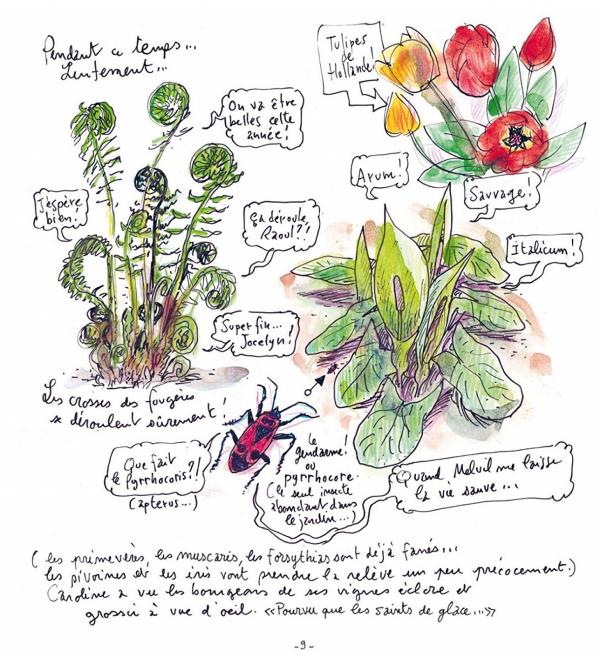 Pendant ce temps...
Lentement...
Tulipes
de
Hollande!
On va être
belles cette
année!
J'espère
bien!
Ça déroule,
Raoul?!
Super fin...
Jocelyn!
Arum!
Sauvage!
Italicum!
Les crosses des fougères
se déroulent sûrement!
Que fait
le Pyrrhocoris?!
(apterus...)
le
gendarme!
ou
pyrrhocore.
(le seul insecte
abondant dans
le jardin...)
Quand Melvil me laisse
la vie sauve...
(les primevères, les muscaris, les forsythias sont déjà fanés...
les pivoines et les iris vont prendre la relève un peu précocement.)
Caroline a vu les bourgeons de ses vignes éclore et
grossir à vue d'oeil. «Pourvu que les saints de glace...»
-9-